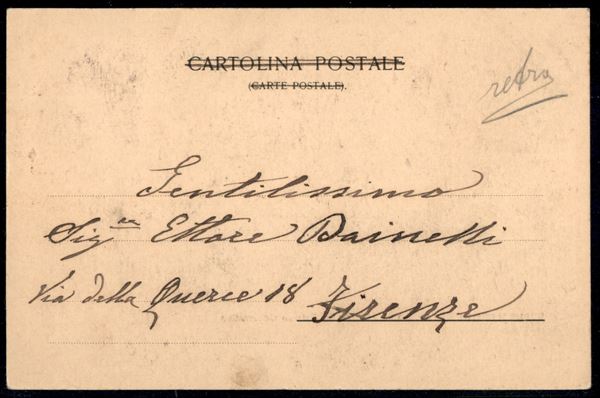 CARTOLINA POSTALE
(CARTE POSTALE).
retro
Gentilissimo
Sig.re Ettore Dainelli
Via della Querce 18 Firenze